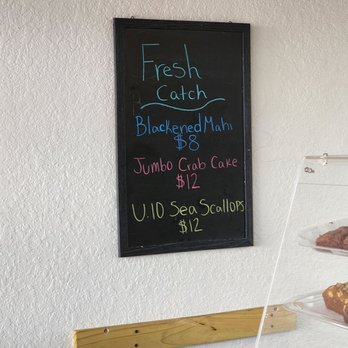 Fresh
Catch
Blackened Mahi
$8
Jumbo Crab Cake
$12
U.10 Sea Scallops
$12